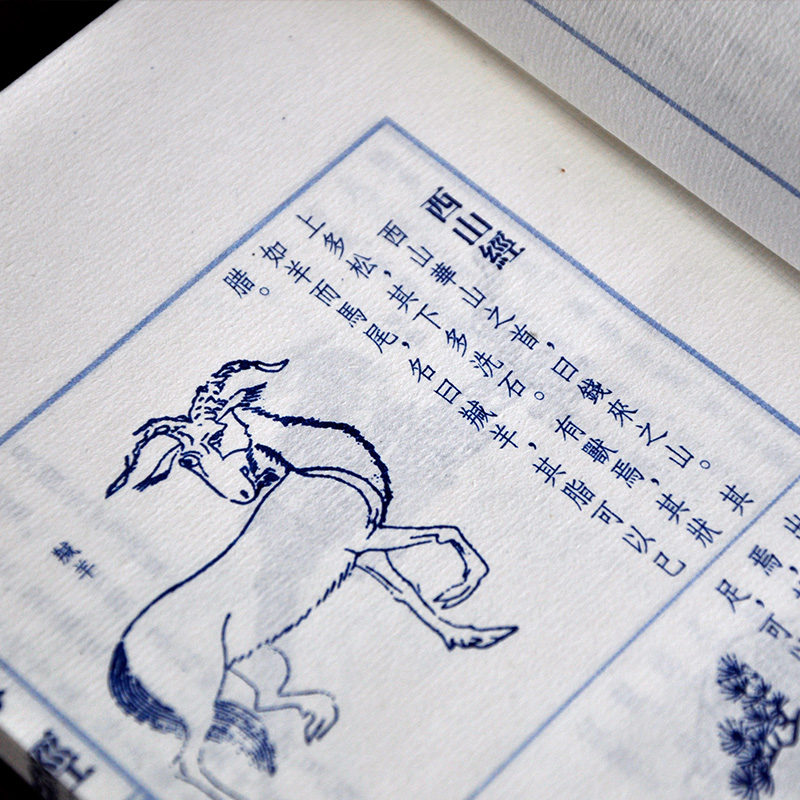 西山經
西山華山之首，曰錢來之山。其
上多松，其下多洗石。有獸焉，其狀
如羊而馬尾，名曰羬羊，其脂可以已
腊。
羬羊
焉，
足，可
經